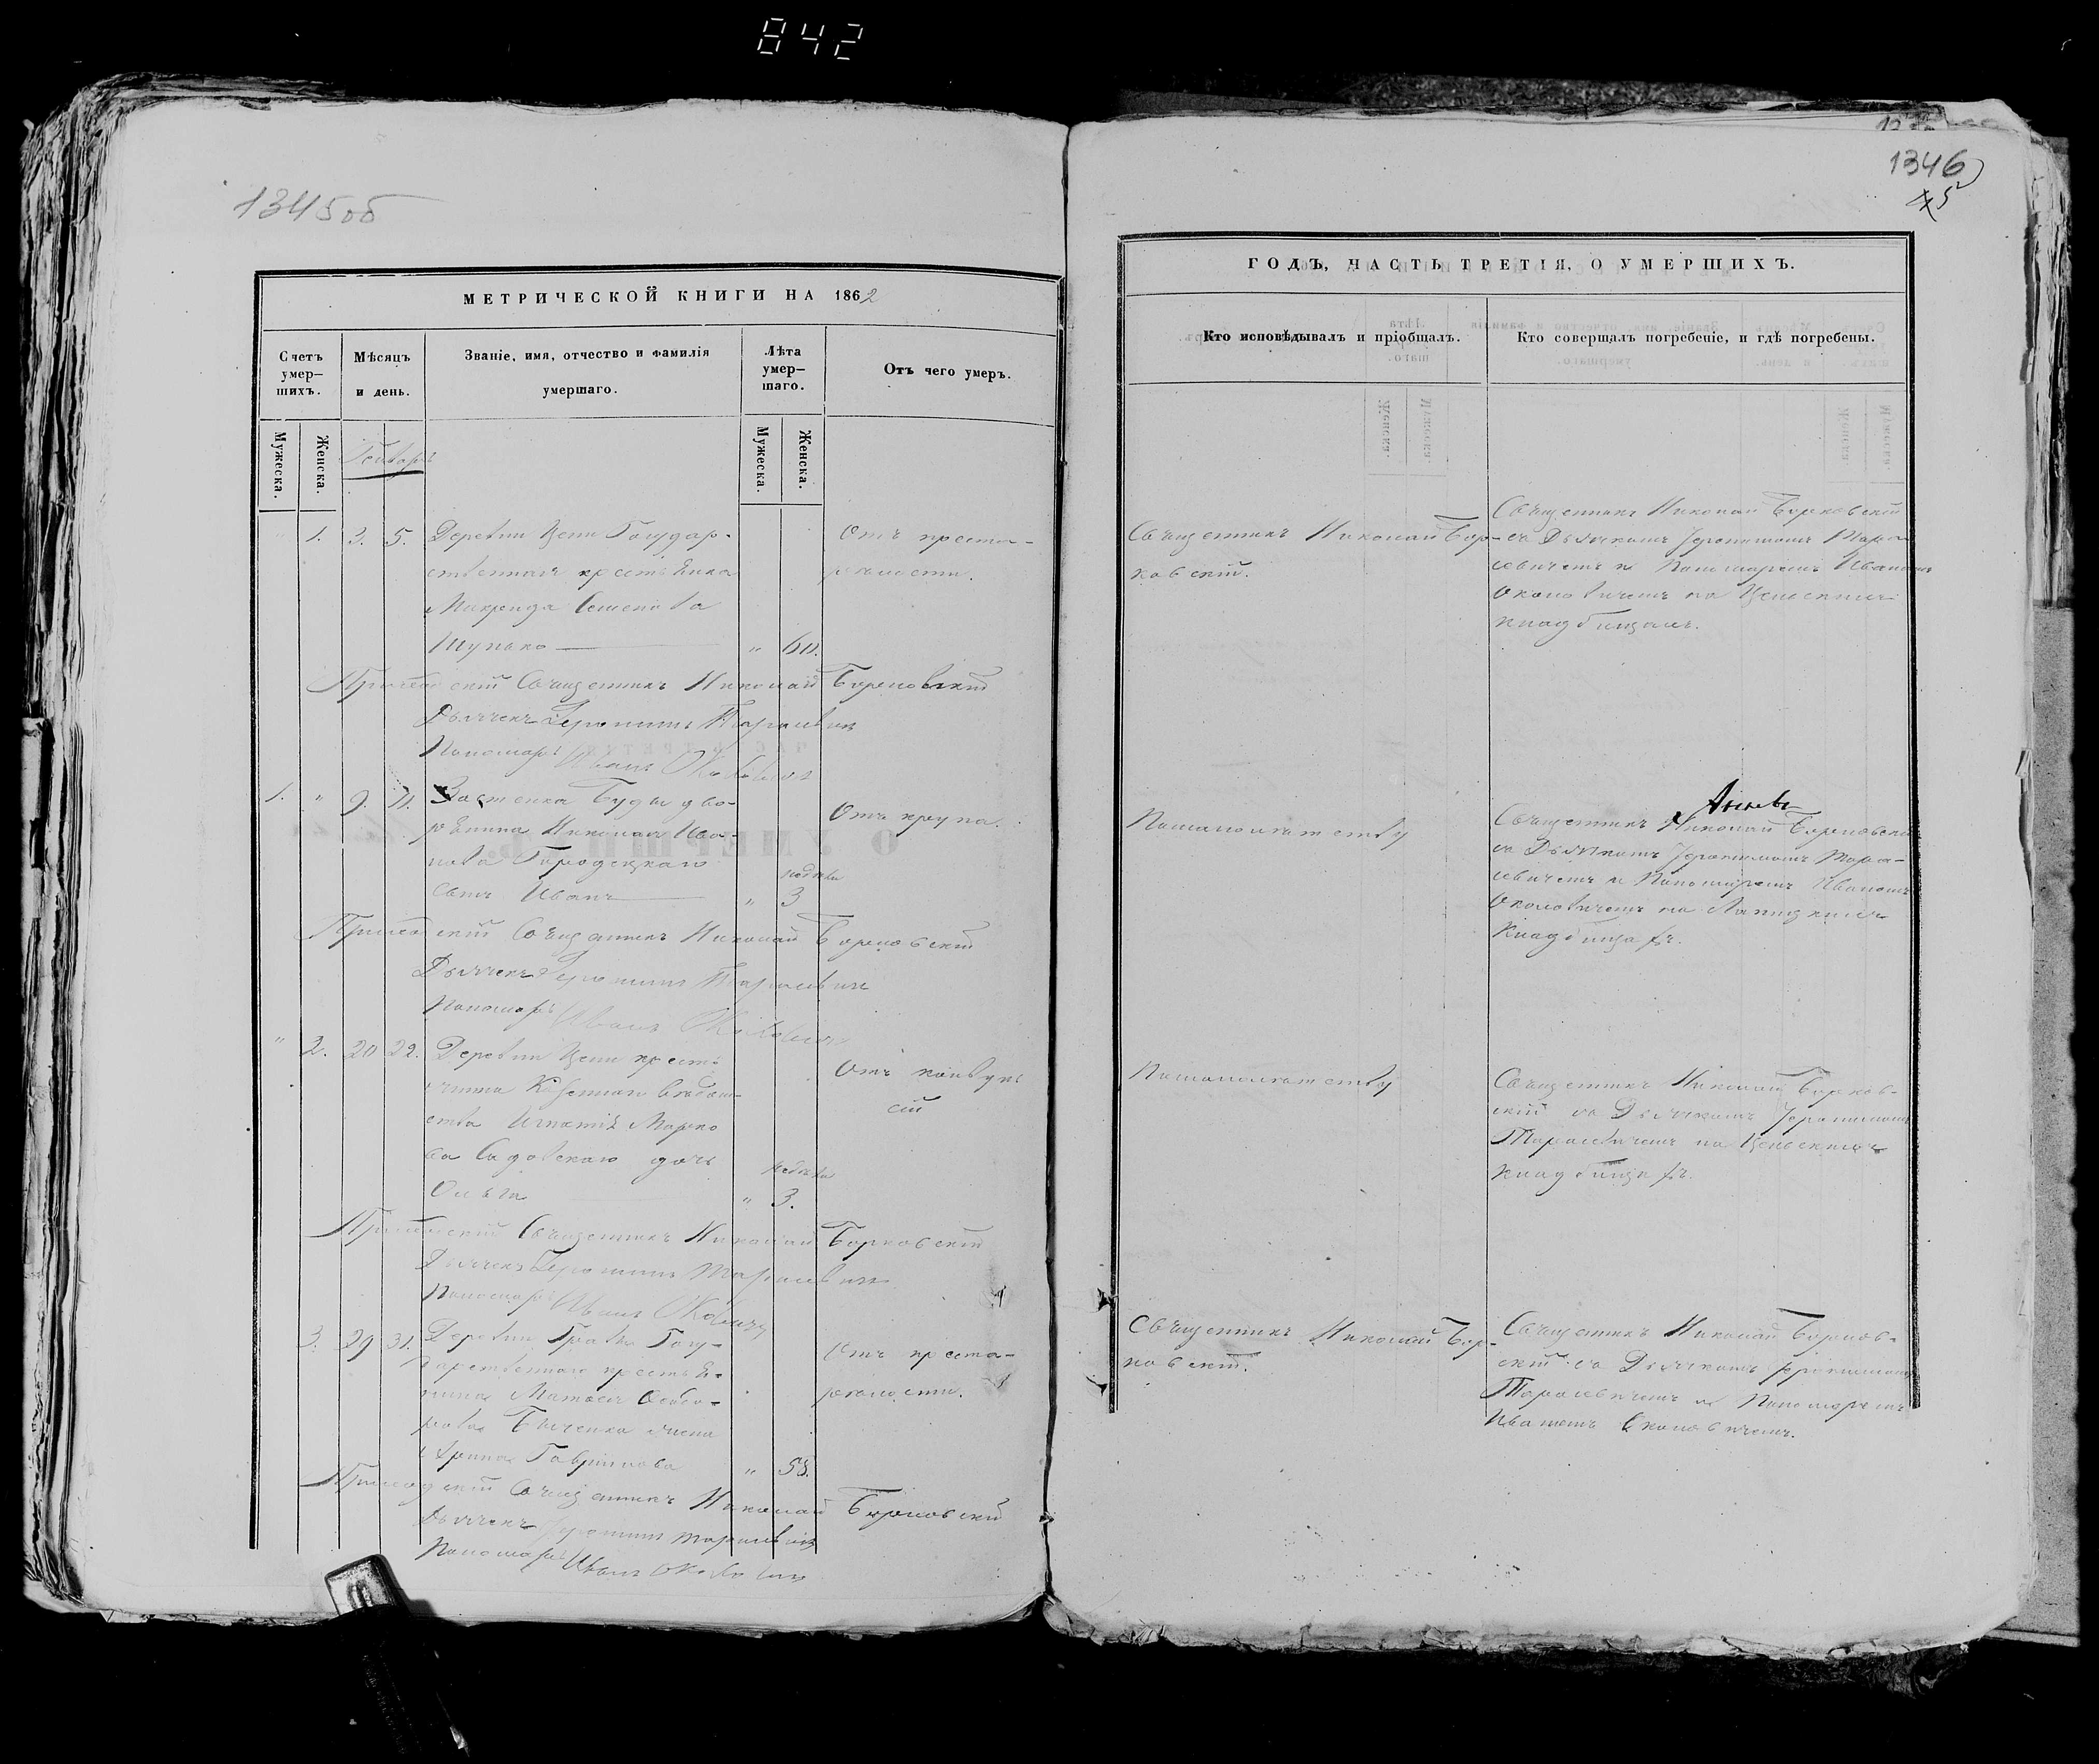 842
1345об
МЕТРИЧЕСКОЙ КНИГИ НА 1862
Счетъ умер-
шихъ.
Мѣсяцъ
и день.
Званіе, имя, отчество и фамилія
умершаго.
Лѣта
умер-
шаго.
Отъ чего умеръ.
Мужеска.
Женска.
Мужеска.
Женска.
Генварь
" 1. 3. 5. Деревни Цепи Государ-
ственная крестьянка
Семенова
Шупько " 60.
Отъ преста-
рѣлости.
Приходскій Священникъ Николай Борковскій
Дьячекъ Іеронимъ Тарасевичъ
Пономарь Иванъ Околовичъ
1. " 9. 11. Застенка Буды дво-
рянина Николая Ива-
нова Городецкаго
сынъ Иванъ " 3
недѣли
Отъ крупа.
Приходскій Священникъ Николай Борковскій
Дьячекъ Іеронимъ Тарасевичъ
Пономарь Иванъ Околовичъ
" 2. 20 22. Деревни Цепи кресть
янина Казеннаго вѣдом-
ства Игнатія Марко
ва Садовскаго дочь
Ольга " 3.
недѣли
Отъ конвуль
сій
Приходскій Священникъ Николай Борковскій
Дьячекъ Іеронимъ Тарасевичъ
Пономарь Иванъ Околовичъ
3. 29 31. Деревни Госу-
дарственнаго крестья-
нина Матвея
рова жена
Гаврилова " 55.
Отъ преста-
рѣлости.
Приходскій Священникъ Николай Борковскій
Дьячекъ Іеронимъ Тарасевичъ
Пономарь Иванъ Околовичъ
1346
45
ГОДЪ, ЧАСТЬ ТРЕТІЯ, О УМЕРШИХЪ.
Кто исповѣдывалъ и пріобщалъ.
Кто совершалъ погребеніе, и гдѣ погребены.
Священникъ Николай Бор-
ковскій.
Священникъ Николай Борковскій
съ Дьячкомъ Іеронимомъ Тара
севичемъ и Пономаремъ Иваномъ
Околовичемъ на Цепскихъ
кладбищахъ.
По малолѣтству
Священникъ Николай Борковскій
съ Дьячкомъ Іеронимомъ Тара-
севичемъ и Пономаремъ Иваномъ
Околовичемъ на
Кладбищахъ.
По малолѣтству
Священникъ Николай Борков-
скій съ Дьячкомъ Іеронимомъ
Тарасевичемъ на Цепскихъ
кладбищахъ.
Священникъ Николай Бор-
ковскій.
Священникъ Николай Борков-
скій съ Дьячкомъ Іеронимомъ
Тарасевичемъ и Пономаремъ
Иваномъ Околовичемъ.